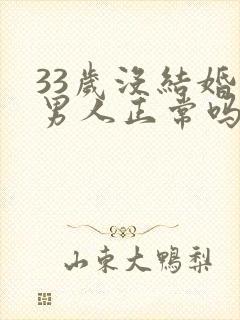 33歲沒結婚
男人正常吗
山东大鴨梨